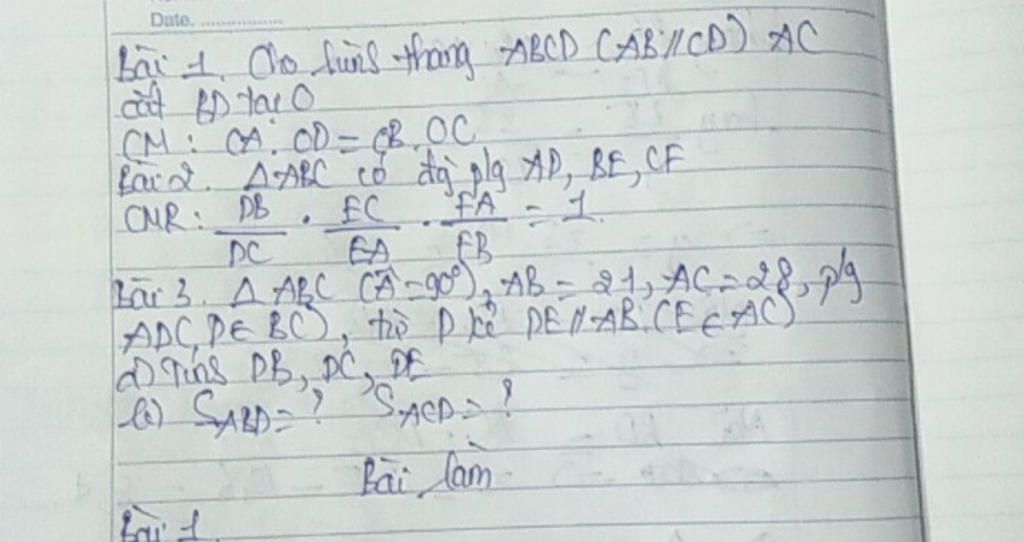 Date. ................
Bài 1. Cho hình thang ABCD (AB//CD) AC
cắt BD tại O
CM: OA. OD = OB. OC
Bài 2. Δ ABC có đg p/g AD, BE, CF
CMR: DB/DC . EC/EA . FA/FB = 1.
Bài 3. Δ ABC (Â=90°), AB = 21, AC = 28, p/g
AD(D∈ BC), từ D kẻ DE // AB. (E ∈ AC)
a) Tính DB, DC, DE
b) S_ABD = ? S_ACD = ?
Bài làm
Bài 1